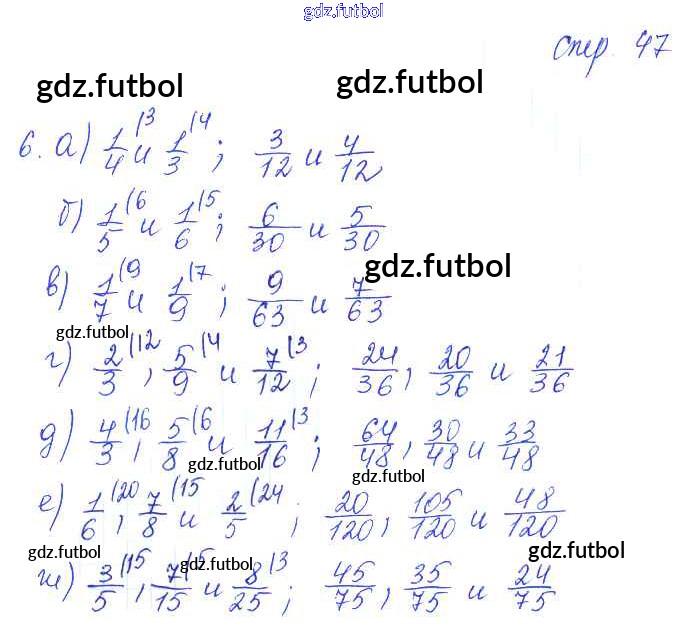 gdz.futbol
стр. 47
gdz.futbol gdz.futbol
6. а) 1/4 (3 и 1/3 (4 ; 3/12 и 4/12
б) 1/5 (6 и 1/6 (5 ; 6/30 и 5/30
gdz.futbol
в) 1/7 (9 и 1/9 (7 ; 9/63 и 7/63
gdz.futbol
г) 2/3 (12 , 5/9 (4 и 7/12 (3 ; 24/36 , 20/36 и 21/36
д) 4/3 (16 , 5/8 (6 и 11/16 (3 ; 64/48 , 30/48 и 33/48
gdz.futbol gdz.futbol
е) 1/6 (20 , 7/8 (15 и 2/5 (24 ; 20/120 , 105/120 и 48/120
gdz.futbol gdz.futbol gdz.futbol
ж) 3/5 (15 , 7/15 (5 и 8/25 (3 ; 45/75 , 35/75 и 24/75